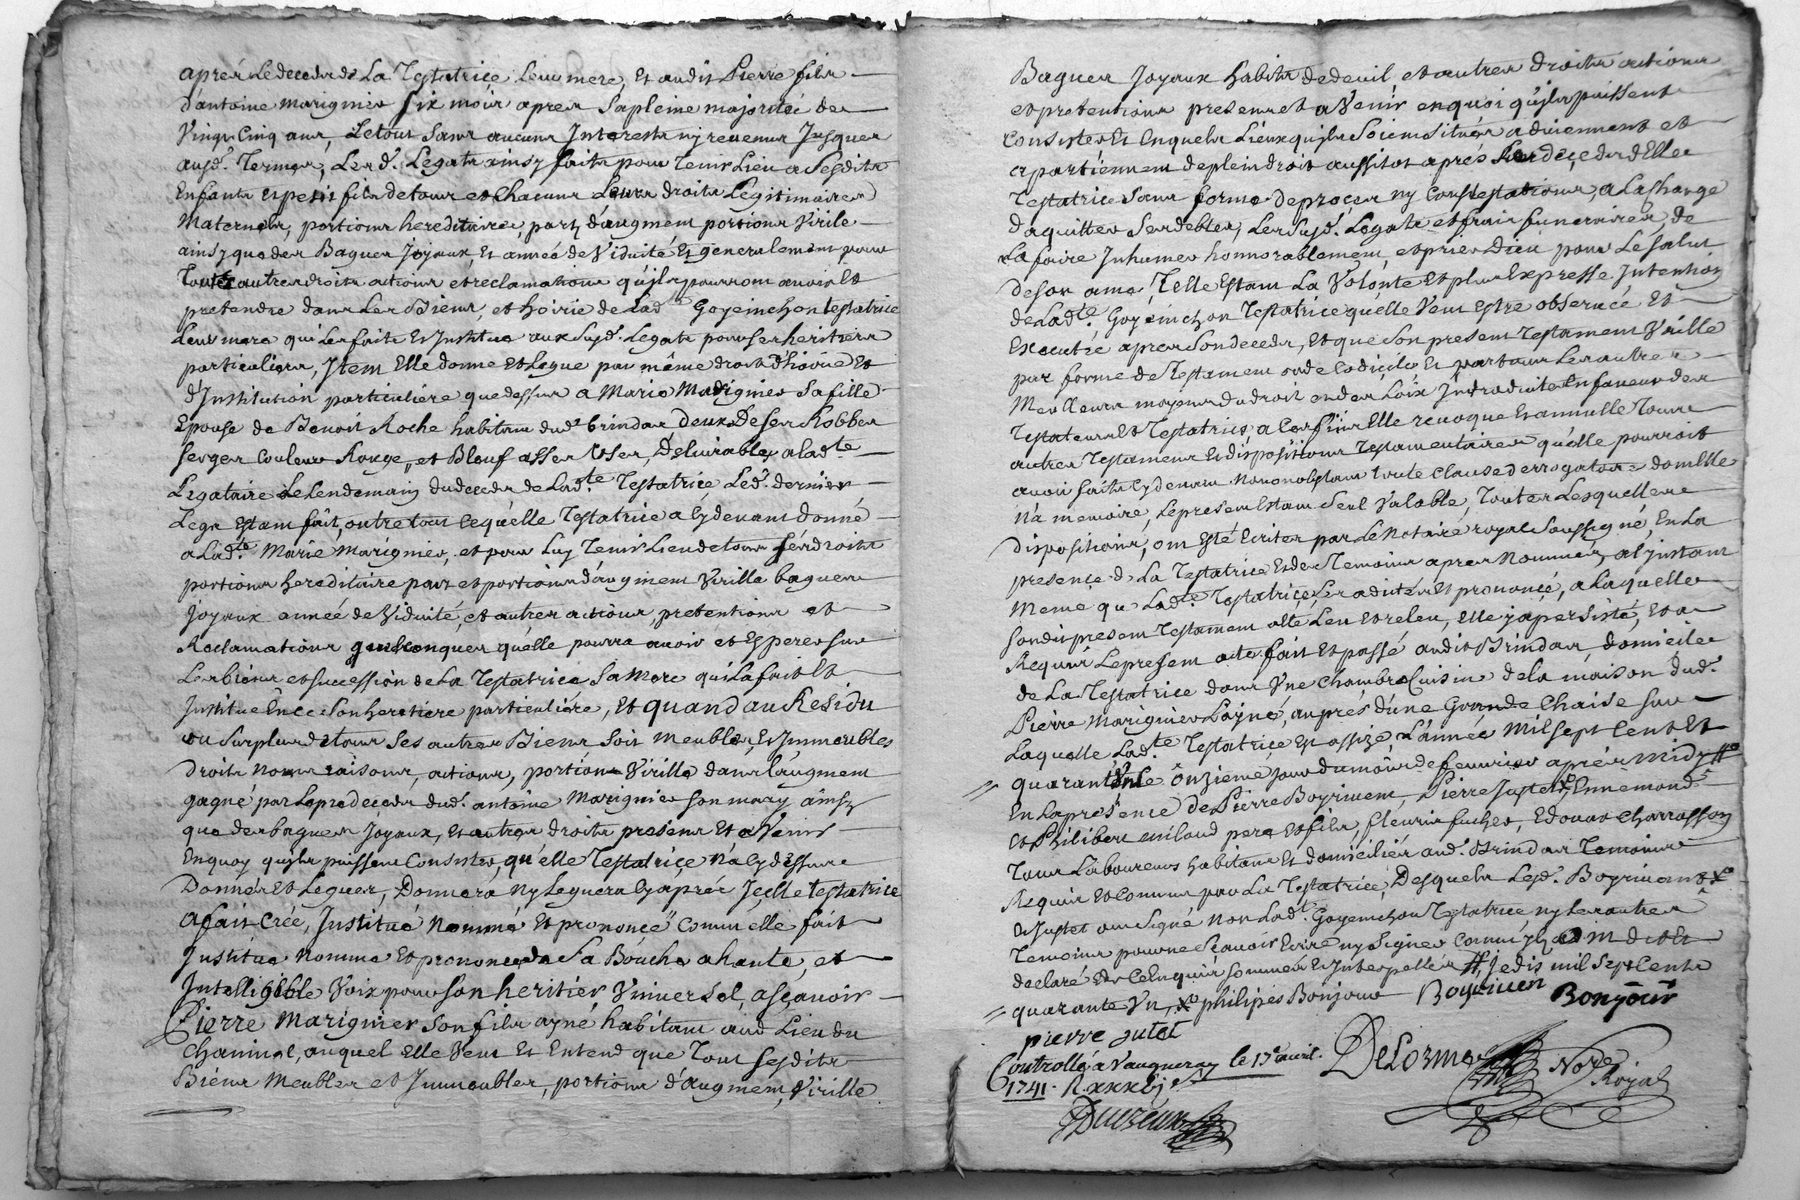 aprés Le deceds de La Testatrice Leur mere, Et audit Pierre fils
d'antoine marignier six mois apres sa pleine majorité de
Vingt Cinq ans, Le tout sans aucuns Interests ny revenus Jusques
ausd. Termes, Lesd. Legats ainsy faits pour Tenir Lieu a Sesdits
Enfants et petit fils de tous et chacuns Leurs droits Legitimaires
Maternels, portions hereditaires, part d'augment portions Virile
ainsy que des Bagues Joyaux, Et année de Viduité Et generalement pour
Touts autres droits actions et reclamations qu'ils pourront avoir Et
pretendre dans Les Biens, et hoirie de Lad. Goyeinchon testatrice
Leur mere qui Les faits Et Institue aux susd. Legats pour ses heritiers
particuliers, Item Elle donne et Legue par même droit d'hoirie Et
d'Institution particuliere que dessus a Marie Marignier sa fille
Epouse de Benoit Roche habitant dud. brindas deux De ses Robbes
serges Couleur Rouge, et Bleuf asser Uzer, Delivrables a lad.te
Legataire Le Lendemain du deceds de Lad.te Testatrice Led. dernier
Legs Estant fait, outre tout Ce qu'elle Testatrice a Cy devant donné
a Lad.te Marie Marignier, et pour Luy Tenir Lieu de tous ses droits
portions hereditaire part et portions d'augment Virille bagues
Joyaux année de Viduité, et autres actions, pretentions et
Reclamations quelconques qu'elle pourra avoir et Esperer sur
Les biens et succession de La Testatrice sa Mere qui La fait Et
Institue En Ce son heretiere particuliére, Et quand au Residu
ou surplus de tous ses autres Biens soit meubles, Et Immeubles
droits noms raisons, actions, portions Virille dans l'augment
gagné par Le predeceds dud. antoine Marignier son mary ainsy
que des bagues Joyaux, Et autres droits presens Et a Venir
En quoy qu'ils puissent Consister, qu'elle Testatrice n'a Cy dessus
Donnés et Legués, Donnera ny Leguera Cy aprés Icelle testatrice
a fait Créé, Institué Nommé Et prononcé Comme elle fait
Institue Nomme Et prononce de Sa Bouche a haute, et
Intelligible Voix pour son heritier Vniversel, asçavoir
Pierre Marignier son fils ayné habitant aud. Lieu du
Chaninal, auquel Elle Veut Et Entend que Tous sesdits
Biens Meubles et Immeubles, portions d'augment, Virille
Bagues Joyaux habits de deuil et autres droits actions
et pretentions presens et a Venir en quoi qu'ils puissent
Consister Et En quels Lieux qu'ils soient situés adviennent et
apartiennent de plein droit aussitot aprés Son deceds d'Elle
Testatrice sans forme de proces ny Contestations, a La charge
d'aquitter ses debtes, Les susd. Legats et frais funeraires, de
La faire Inhumer honnorablement, et prier Dieu pour Le salut
de son ame, Telle Estant La Volonté Et plus Expresse Intention
de Lad.te Goyeinchon Testatrice qu'elle Veut Estre observée Et
Executée apres son deceds, Et que son present Testament Vaille
par forme de Testament ou de Codicile Et par tous Les autres
Meilleurs moyens du droit et des Loix Introduites En faveur des
Testateurs Et Testatrices a Ces fins Elle revoque Et annulle Tous
autres Testaments Et dispositions Testamentaires qu'elle pourroit
avoir faits Cy devant Nonobstant toute Clause derrogatoire dont Elle
N'a memoire, Le present Estant seul Valable, Toutes Lesquelles
dispositions, ont Esté Ecrites par Le Notaire royal soussigné, En La
presence de La Testatrice Et des Temoins apres Nommés, a l'Instant
Meme que Lad.te Testatrice Les a dictés Et prononcé, a Laquelle
sondit present Testament a eté Leu Et releu, Elle y a persisté, Et a
Requis Le present acte fait Et passé audit Brindas, domicile
de La Testatrice dans Vne Chambre Cuisine de la maison dud.
Pierre Marignier L'ayné, auprés d'une Grande Chaise sur
Laquelle Lad.te Testatrice Est assize, L'année Mil sept Cent Et
quarante Vn Le Onzieme Jour du mois de fevrier aprés Midy #
En La presence de Pierre Boyrivent, Pierre Jutet, x Ennemond
Et Philibert milaud pere Et fils, fleurin fuches, Edouar Charrasson
Tous Laboureurs habitans Et domiciliés aud. Brindas Temoins
Requis et Connus par La Testatrice, Desquels Lesd. Boyrivant x
Et Jutet ont signé non Lad.te Goyeinchon Testatrice ny Les autres
Temoins pour ne sçavoir Ecrire ny signer Comme Ils ont dit Et
declaré de Ce Enquis sommés Et Interpellés #, Je dis mil Sept Cents
quarante Vn, x philipes Bonjour Boyrivent Bonjour
pierre jutet
Controllé a Vaugneray le 17e avril.
1741. R. xxxbj s.
Delorme Nore Royal